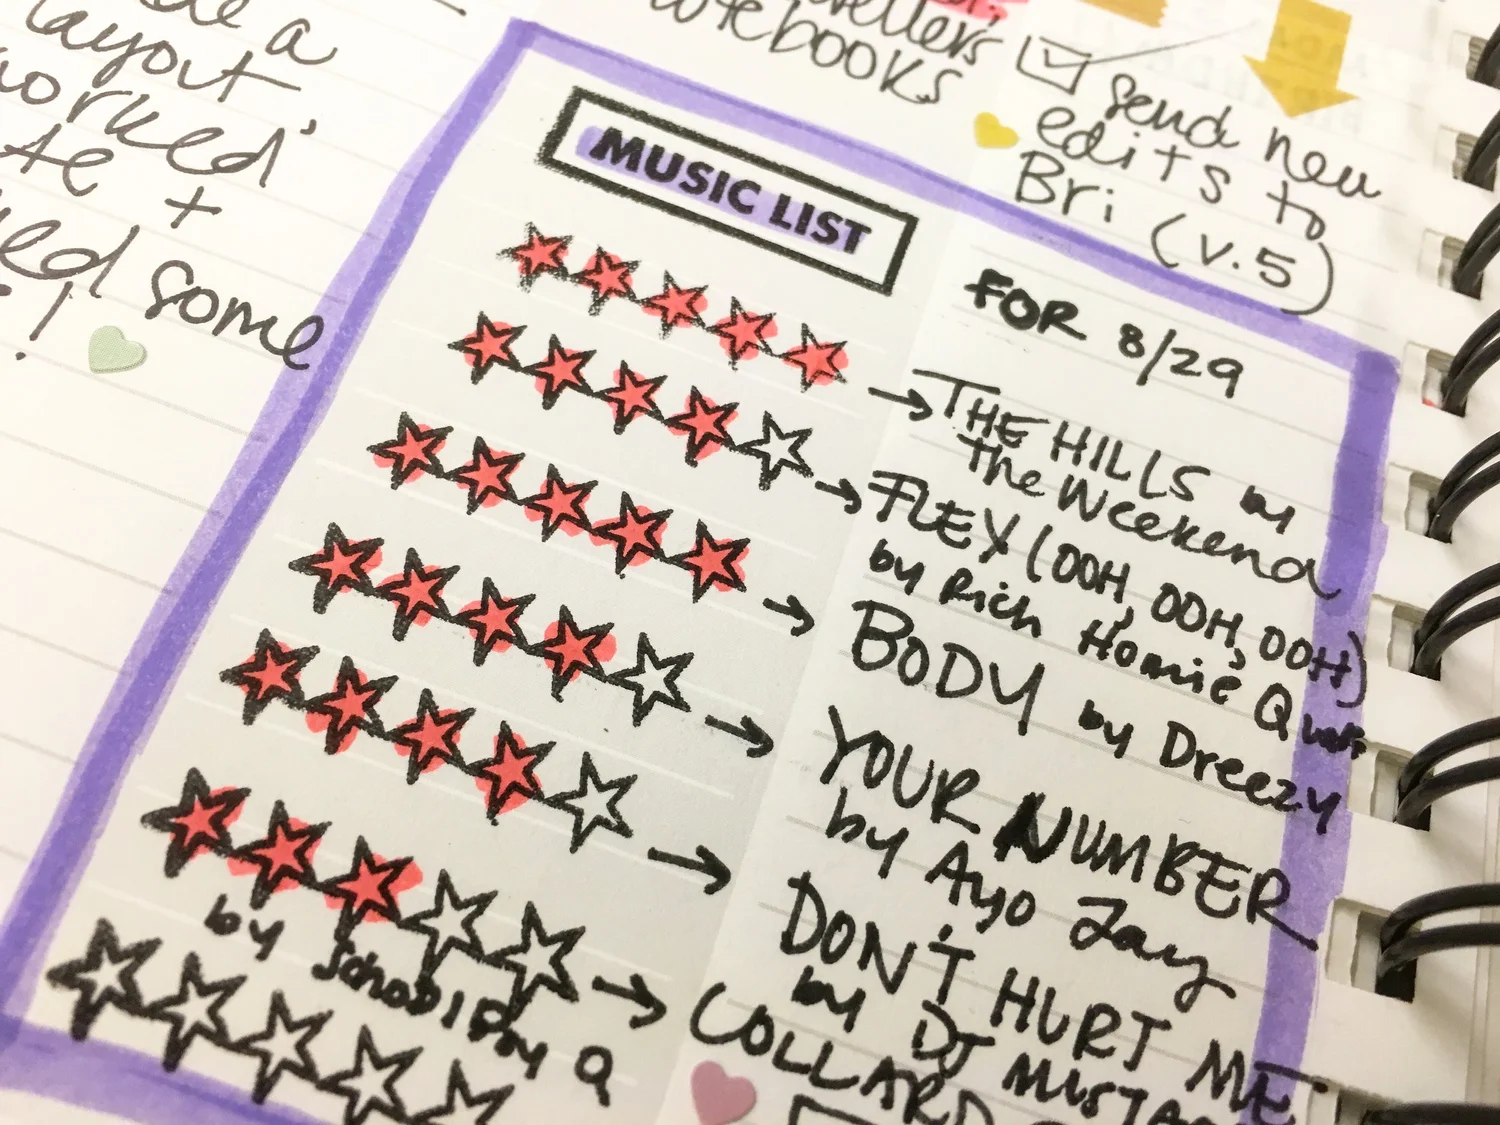 a
layout
worked,
+
some
!
notebooks
send new
edits to
Bri (v.5)
MUSIC LIST
FOR 8/29
THE HILLS by
the Weekend
FLEX (OOH, OOH, OOH)
by Rich Homie Quan
BODY by Dreezy
YOUR NUMBER
by Ayo Jay
DON'T HURT ME
by DJ
by Q